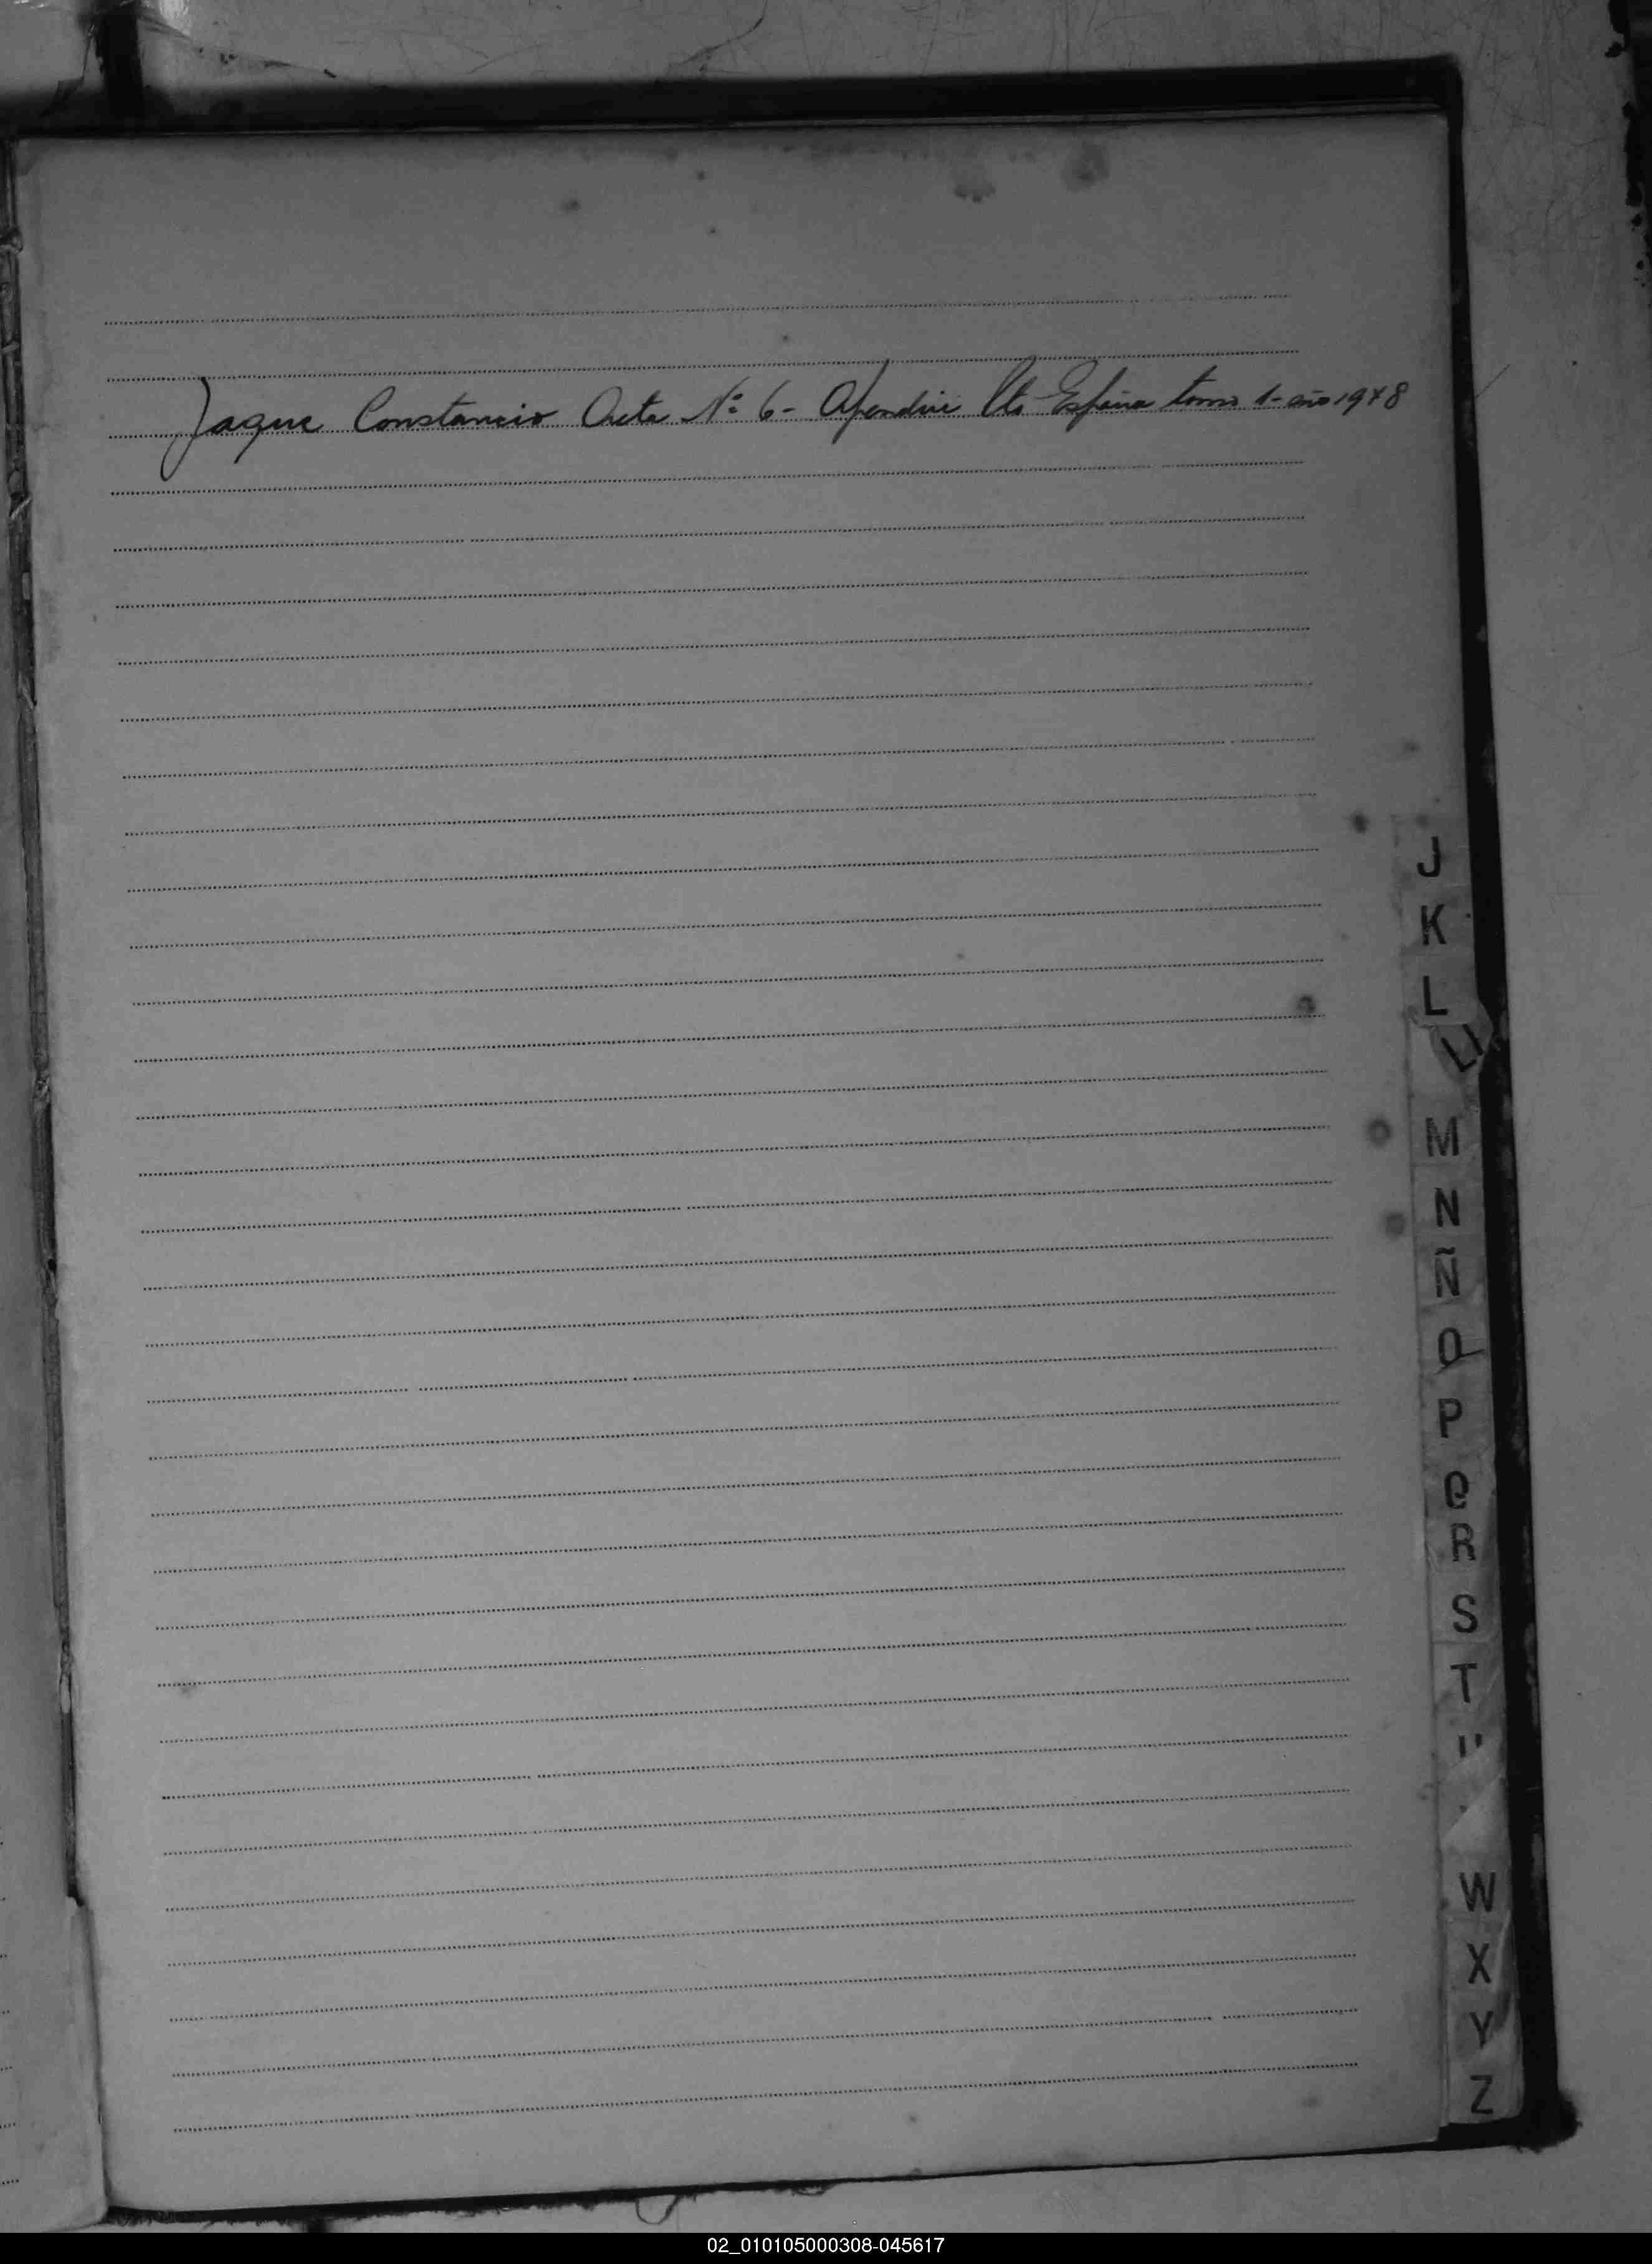 Jaque Constancio Acta Nº 6- Apendice Cto España tomo 1- año 1948
J
K
L
Ll
M
N
Ñ
O
P
Q
R
S
T
W
X
Y
Z
02_010105000308-045617